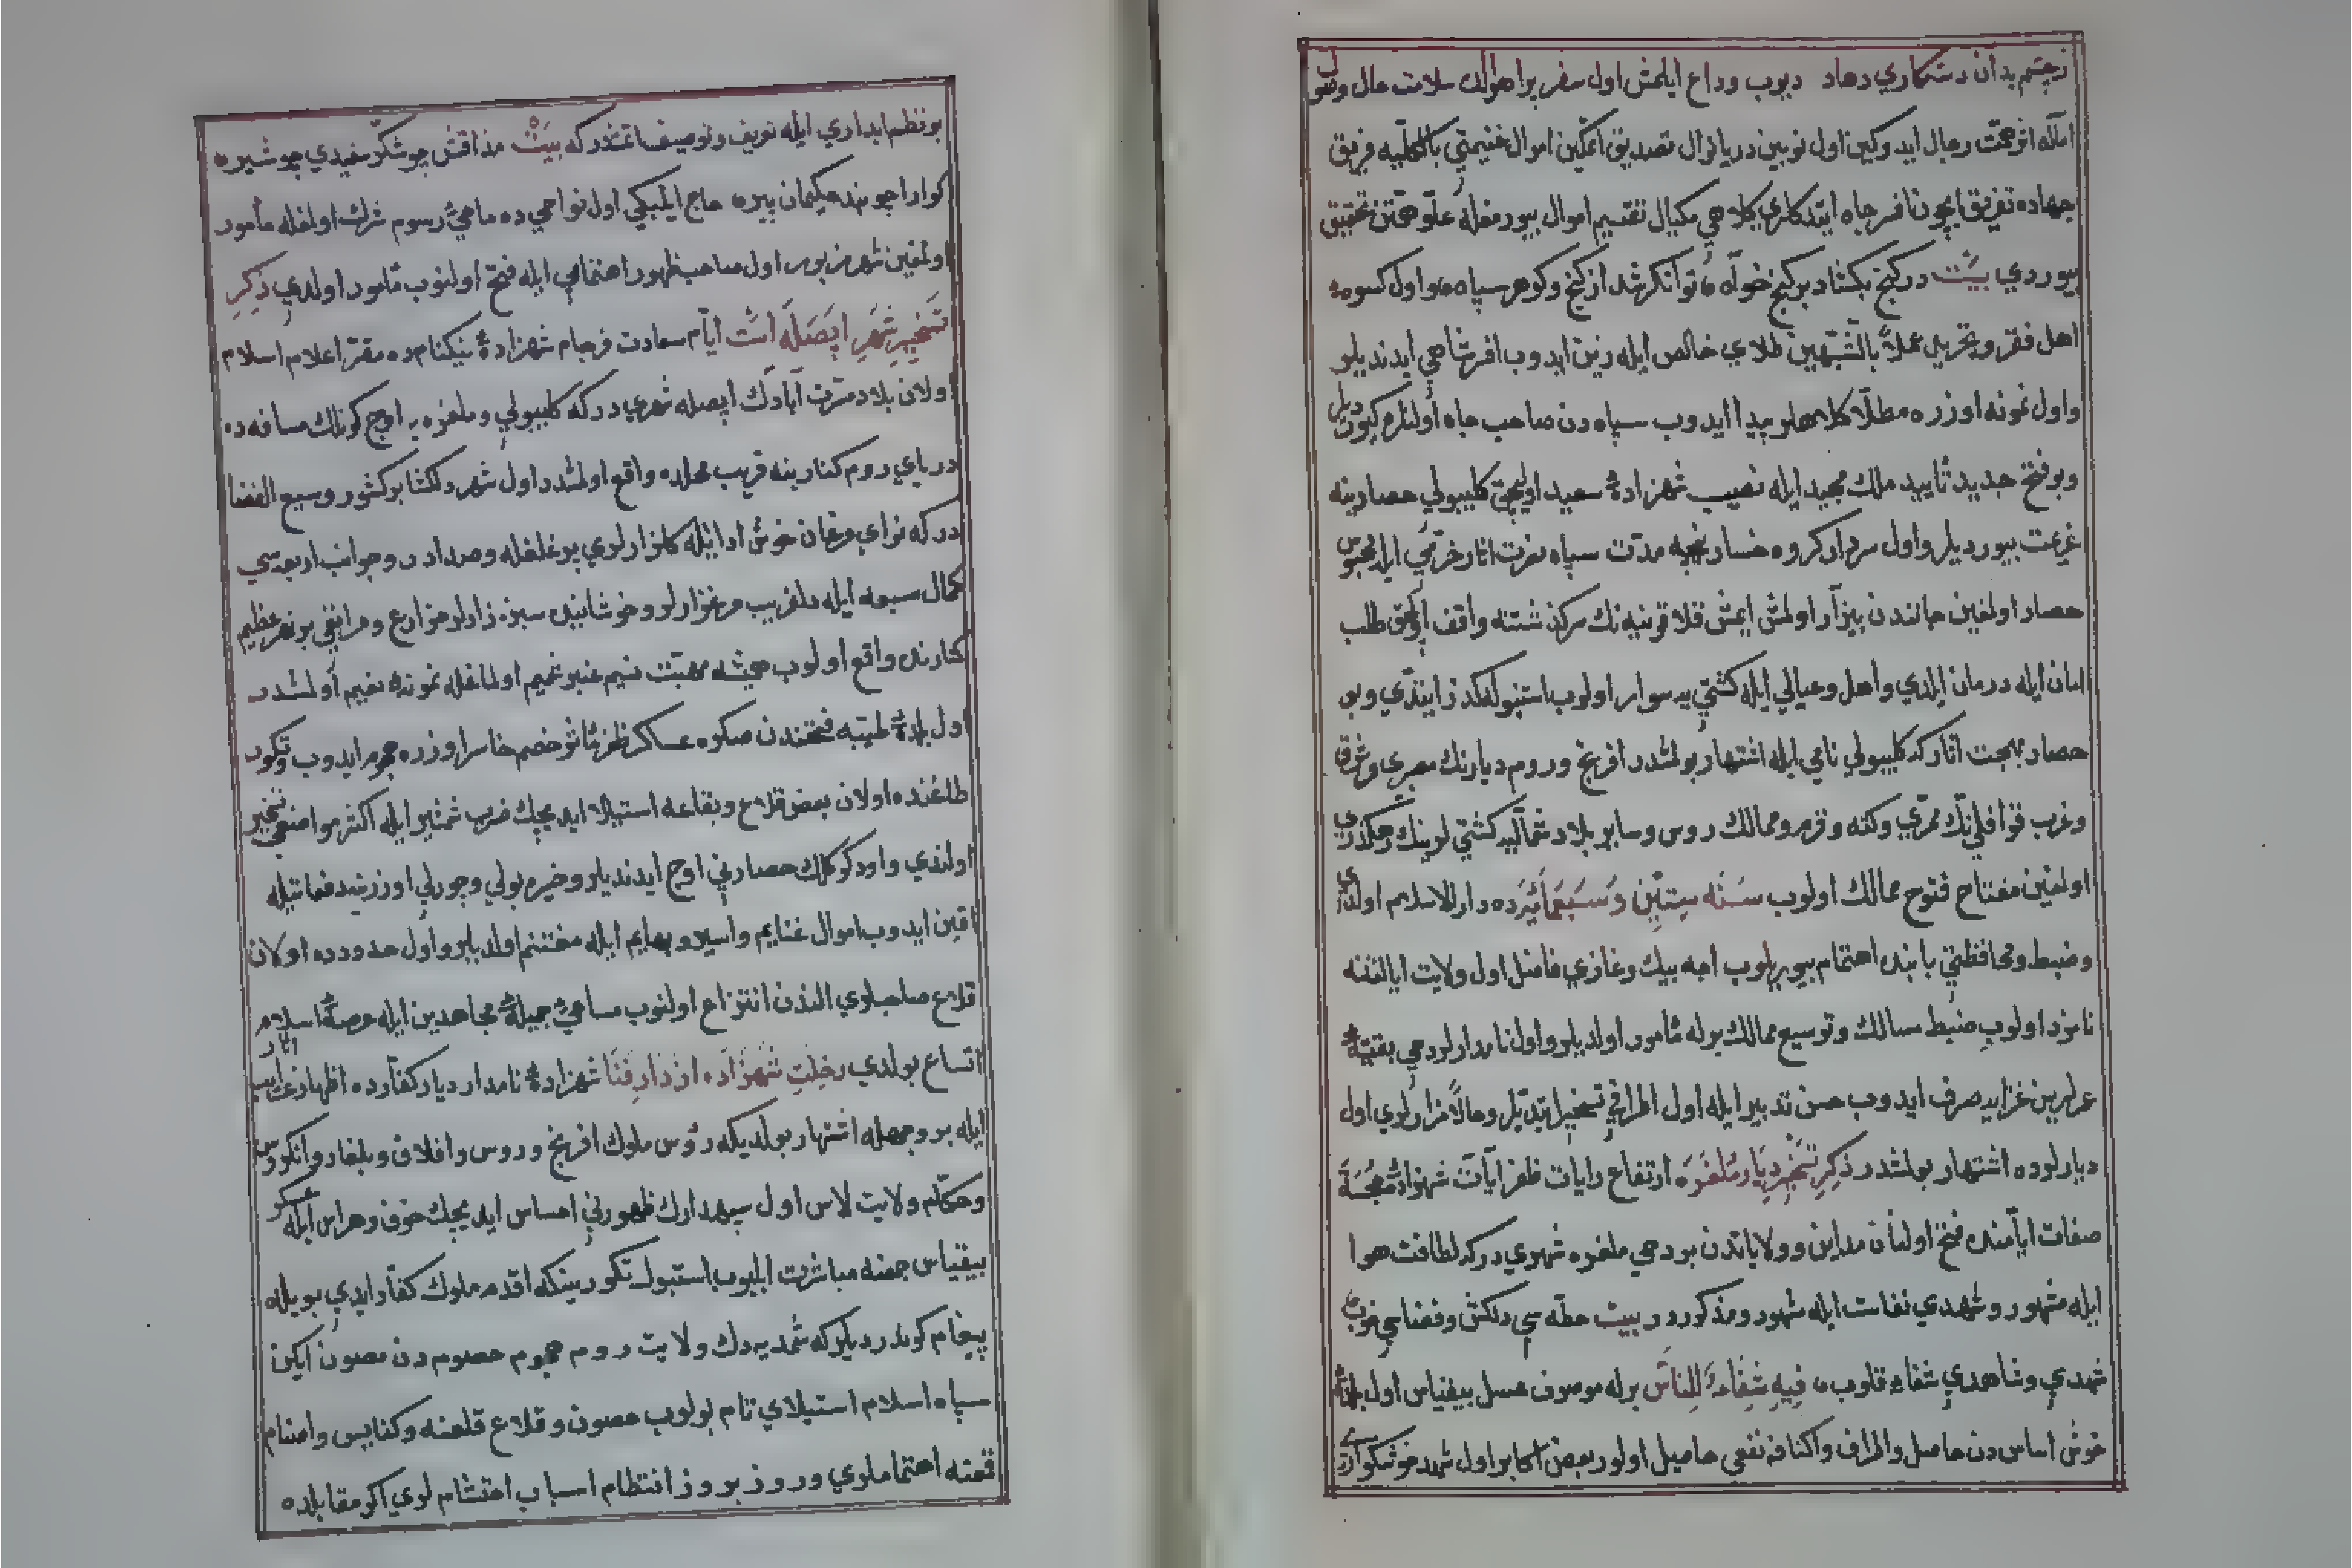 زچشم بدان رستكاري دهاد ديوب وداع ايلمش اول سفر پر اهوالك سلامت حال وصول
اماله انوعجت رجال ايدوكين اول نوبين دريا نوال تصديق ايتمكين اموال غنيمتي بالكليه فريق
جهاده تفريق ايچون تا فسر جاه ايتدكلري كلاهي مكيال تقسيم اموال بيورمغله علو همتن تحقيق
بيوردي بيت در كنج بكشاد بر كنج خواه توانكر شد از كنج وكوهر سپاه واول كسوه
اهل فقر وتجريدي عملا بالشبهين طلاي خالص ايله زين ايدوب افرشاهي ايدنديلر
واول نمونه اوزره مطلا كلاهلر پيدا ايدوب سپاه دن صاحب جاه اولنلره كيورديلر
وبو فتح جديد تأييد ملك مجيد ايله نصيب شهزادۀ سعيد اوليجق كليبولي حصارينه
عزيمت بيورديلر واول سردار كروه خسار نيجه مدت سپاه نصرت اثار خرمي ايله محبوس
حصار اولمغين جانندن بيزار اولمش ايمش قلا قرنيه نك سركذشتنه واقف اوليجق طلب
امان ايله درمان ايلدي واهل وعيالي ايله كشتي يه سوار اولوب استنبوله كذر ايتدي وبو
حصار بهجت اثار كه كليبولي نامي ايله اشتهار بولمشدر افرنج وروم ديارنك معبري وشرق
وغرب قوافلينك ممري وكفه وقرم وممالك روس وساير بلاد شماليه كشتي لرينك رهكذري
اولمغين مفتاح فتوح ممالك اولوب سنه ستين وسبعمائه ده دار الاسلام اولدي
وضبط ومحافظتي بابنده اهتمام بيوريلوب اجه بيك وغازي فاضل اول ولايت ايالتنه
نامزد اولوب ضبط مسالك وتوسيع ممالك برله مأمور اولديلر واول نامدارلر دخي بقيۀ
عمرلرين غزايه صرف ايدوب حسن تدبير ايله اول اطرافي تسخير ايتديلر وحالا مزارلري اول
ديارلرده اشتهار بولمشدر ذكر تسخير ديار ملغره ارتفاع رايات ظفر ايات شهزادۀ خجسته
صفات ايامنده فتح اولنان مداين وولاياتدن بر دخي ملغره شهري دركه لطافت هوا
ايله مشهور وشهدي نفاست ايله مشهود ومذكوردر بيت خطه سي دلكش وفضاسي خوب
شهدي وشاهدي شفاء قلوب فيه شفاء للناس برله موصوف عسل بيقياس اول بلدۀ
خوش اساس دن حاصل واطراف واكنافه نفعي حاصل اولور بعض اكابر اول شهد خوشكواري
بو نظم ابداري ايله تعريف وتوصيف اتمشدر كه بيت مذاقش چو شكر سفيدي چو شيره
كوارا چو پند حكيمان پيره حاج ايلبكي اول نواحي ده ماحيۀ رسوم شرك اولمغله مأمور
اولمغين شهر مزبور اول صاحب ظهور اهتمامي ايله فتح اولنوب مأمور اولدي ذكر
تسخير شهر ايپصله است ايام سعادت فرجام شهزادۀ نيكنام ده مقر اعلام اسلام
اولان بلاد مسرت آبادك ايپصله شهري دركه كليبولي وملغره يه اوچ كونلك مسافه ده
درياي روم كنارينه قريب محلده واقع اولمشدر اول شهر دلكشا بر كشور وسيع الفضا
دركه نواي مرغان خوش ادا ايله كلزارلري پر غلغله وصدادر وجوانب اربعه سي
كمال سبوله ايله دلفريب مرغزارلر وخوشاينده سبزه زارلر مزارع ومرافقي بر نهر عظيم
كنارنده واقع اولوب هميشه مهبت نسيم عنبر شميم اولمغله نمونۀ نعيم اولمشدر
اول بلدۀ طيبه فتحندن صكره عساكر ظفر مآثر خصم خاسر اوزره هجوم ايدوب تكور
طاغنده اولان بعض قلاع وبقاعه استيلا ايديجك ضرب شمشير ايله اكثر مواضعي تسخير
اولندي واودكوكلك حصارني اوج ايدنديلر وخيره بولي وچورلي اوزرينه دفعاتيله
اقين ايدوب اموال غنايم واسير وبهايم ايله مغتنم اولديلر واول حدودده اولان
قلاع صاحبلري الندن انتزاع اولنوب مساعيۀ جميلۀ مجاهدين ايله عرصۀ اسلام
اتساع بولدي رحلت شهزاده از دار فنا شهزادۀ نامدار ديار كفارده اظهار غرايب اثار
ايله بر وجهله اشتهار بولديكه رؤس ملوك افرنج وروس وافلاق وبلغار وانكروس
وحكام ولايت لاس اول سپهدارك ظهورني احساس ايديجك خوف وهراس ايله عسكر
بيقياس جمعنه مباشرت ايليوب استنبول تكورينكه اقدم ملوك كفار ايدي بويله
پيغام كوندرديلر كه شمديه دك ولايت روم هجوم خصوم دن مصون ايكن
سپاه اسلام استيلاي تام بولوب حصون وقلاع قلعنه وكنايس واصنام
قمعنه اهتماملري وروز بروز انتظام اسباب احتشاملري اكر مقابلده